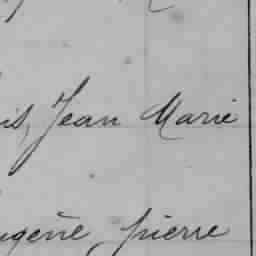 is, Jean Marie
ugène, pierre